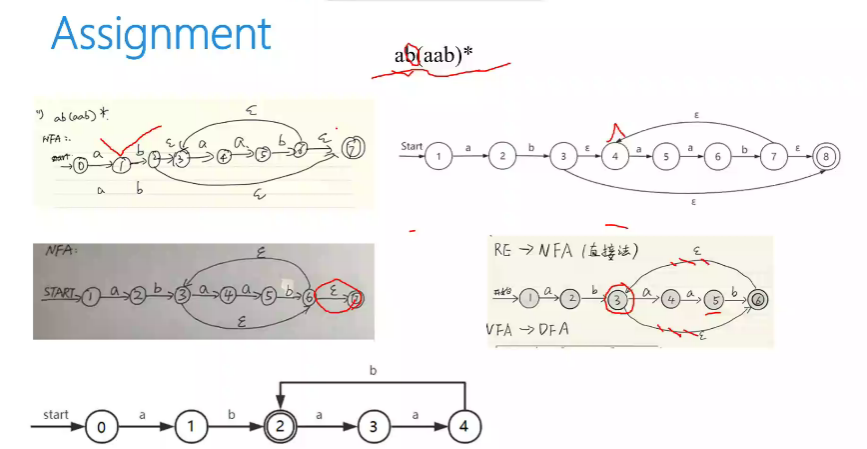 Assignment
ab(aab)*
1) ab(aab)*.
NFA:
start 0 a 1 b 2 ε 3 a 4 a 5 b 6 ε 7
ε
ε
a b
Start 1 a 2 b 3 ε 4 a 5 a 6 b 7 ε 8
ε
ε
NFA:
ε
START 1 a 2 b 3 a 4 a 5 b 6 ε
ε
RE → NFA (直接法)
ε
1 a 2 b 3 a 4 a 5 b 6
ε
NFA → DFA
b
start 0 a 1 b 2 a 3 a 4